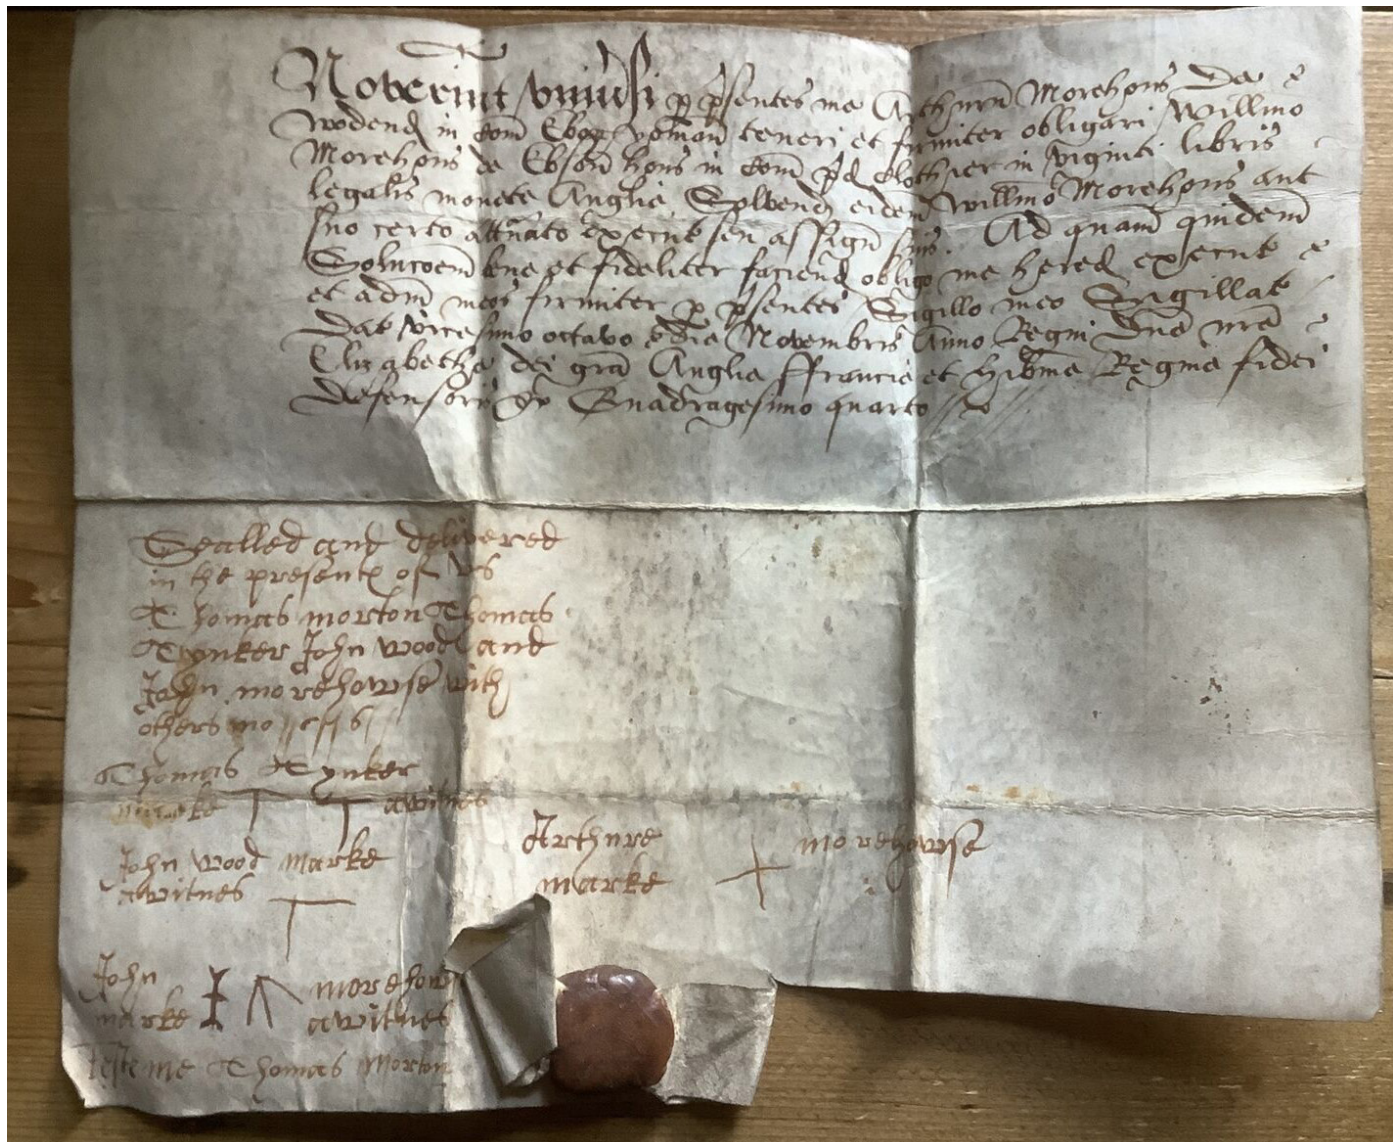 Noverint univsi p psentes me Arthurn Morehous de
Wodend in Com Ebor yoman teneri et firmiter obligari Willmo
Morehous de Ebson hous in Com pd clothier in viginti libris
legalis monete Anglie Solvend eidem Willmo Morehous aut
suo certo attnato execut seu assign suis. Ad quam quidem
Solucoem bene et fideliter faciend obligo me hered execut
et adm meos firmiter p psentes Sigillo meo Sigillat
Dat vicesimo octavo die Novembris Anno Regni Dne nre
Elizabethe dei gra Anglie ffrancie et Hibnie Regine fidei
defensoris &c Quadragesimo quarto
Sealled and delivered
in the presenc of Us
Thomas morton Thomas
Tynker John wood and
John morehowse with
others mo
Thomas Tynker
marke T T awitnes
John wood marke
awitnes T
Arthure morehowse
marke +
John morehows
marke awitnes
Teste me Thomas Morton